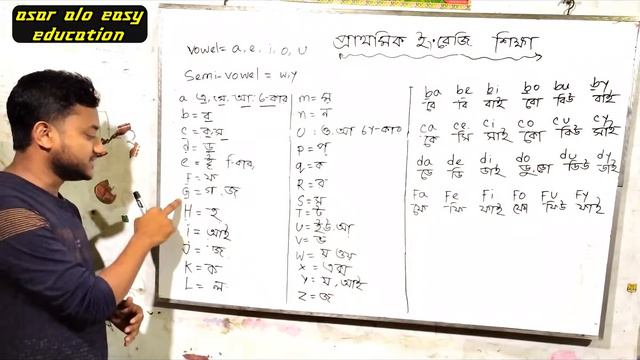 asar alo easy
education
প্রাথমিক ইংরেজি শিক্ষা
Vowel = a, e, i, o, u
Semi-vowel = w, y
a এ, য়ে, আ,
b = ব
c = ক, স
d = ড
e = ই, f-কার,
F = ফ
G = গ, জ
H = হ
i = আই
J = জ
K = ক
L = ল
m = ম
n = ন
O : ও, আ
P = প
q = ক
R = র
S = স
T = ট
U = ইউ, আ
V = ভ
W = য়
X = এক্স
Y = য়, আই
Z = জ
ba be bi bo bu by
বে বি বাই বো বিউ বাই
ca ce ci co cu cy
কে সি সাই কো কিউ সাই
da de di do du dy
ডে ডি ডাই ডু, ডো ডিউ ডাই
Fa Fe Fi Fo Fu Fy
ফে ফি ফাই ফো ফিউ ফাই